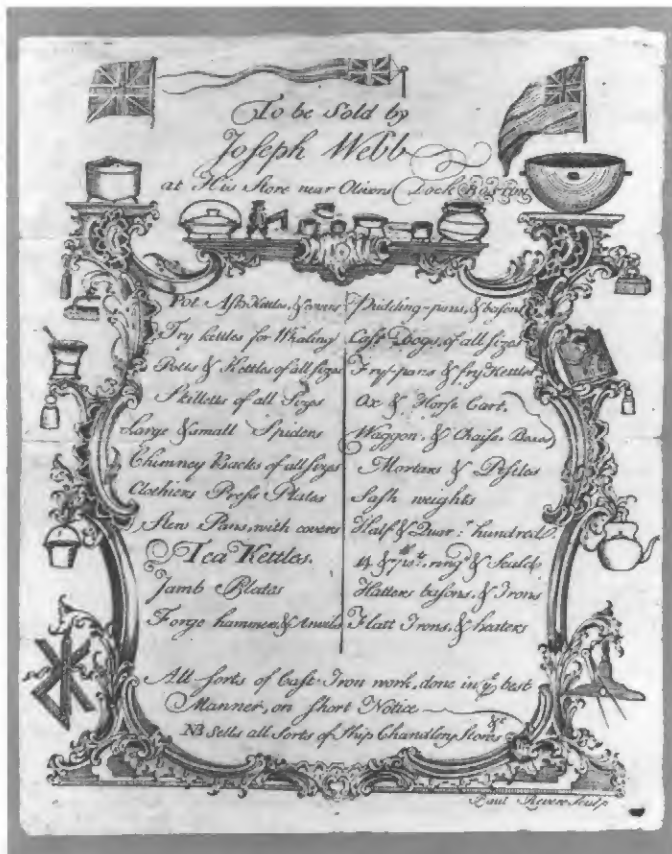 To be Sold by
Joseph Webb
at His Store near Olivers Dock BOSTON
Pot Ash Kettles, & covers
Try kettles for Whaling
Potts & Kettles of all sizes
Skillets of all Sizes
Large & small Spiders
Chimney Backs of all sizes
Clothiers Press Plates
Stew Pans, with covers
Tea Kettles.
Jamb Plates
Forge hammers, & Anvils
Pudding-pans, & basons
Cast Dogs, of all sizes
Frys-pans & fry Kettles
Ox & Horse Cart,
Waggon, & Chaise Boxes
Mortars & Pestles
Sash weights
Half & Quar.r hundred
14 & 7 ring'd &
Hatters basons, & Irons
Flatt Irons, & heaters
All sorts of Cast Iron work, done in ye best
Manner, on short Notice
NB Sells all sorts of Ship Chandlery Stores &c
Paul Revere Sculp